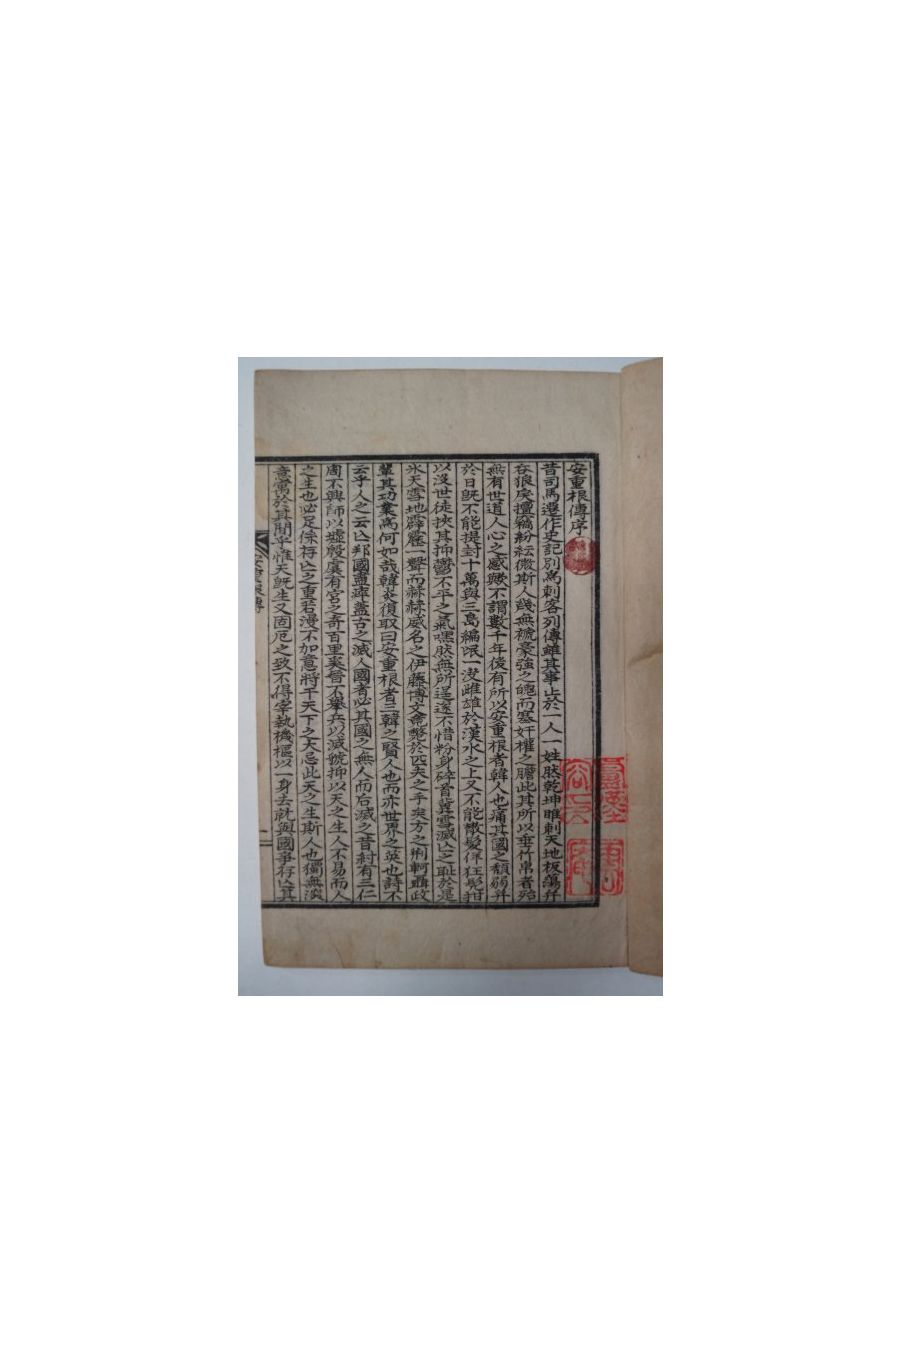 安重根傳序
昔司馬遷作史記別爲刺客列傳雖其事止於一人一姓然乾坤睢剌天地板蕩幷
吞狼戾擅竊紛紜微斯人幾無褫豪強之魄而寒奸權之膽此其所以垂竹帛者殆
無有世道人心之感歟不謂數千年後有所以安重根者韓人也痛其國之頹弱幷
於日旣不能提封十萬與三島編氓一決雌雄於漢水之上又不能散髮佯狂髡
以沒世徒挾其抑鬱不平之氣嘿然無所逞遂不惜粉身碎首冀雪滅亾之恥於是
氷天雪地霹靂一聲而赫赫威名之伊藤博文竟斃於匹夫之手矣方之荊軻聶政
輩其功業爲何如哉韓炎復取曰安重根者三韓之賢人也而亦世界之英也詩不
云乎人之云亾邦國盡瘁蓋古之滅人國者必其國之無人而后滅之昔紂有三仁
周不興師以墟殷虞有宮之奇百里奚晉不擧兵以滅虢抑以天之生人不易而人
之生也必足係存亾之重若漫不加意將干天下之大忌此天之生斯人也獨無深
意寓於其間乎惟天旣生又固厄之致不得宰執機樞以一身去就與國爭存亾其
安重根傳